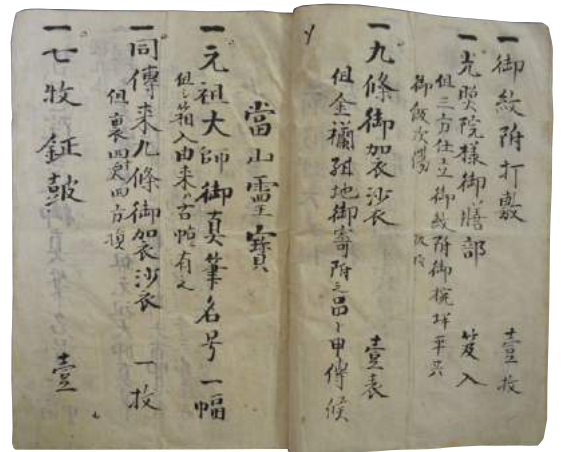 一御紋附打敷 壹枚
一光照院様御膳部 笈入
但三方仕立御紋附御椀坏平共
御飯次湯
一九條御袈裟衣 壹衣
但金襴紐地御寄附之品ニ申傳候
當山霊寶
一元祖大師御真筆名号 一幅
但シ箱入由来ハ古帖ニ有之
一同傳来九條御袈裟衣 一枚
但裏四天四方
一七枚鉦鼓 壹